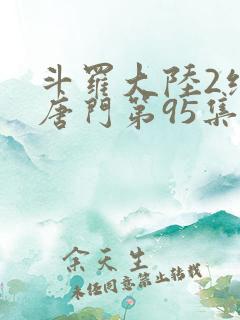 斗羅大陸2絕
唐門第95集
余天生
未經同意禁止轉載